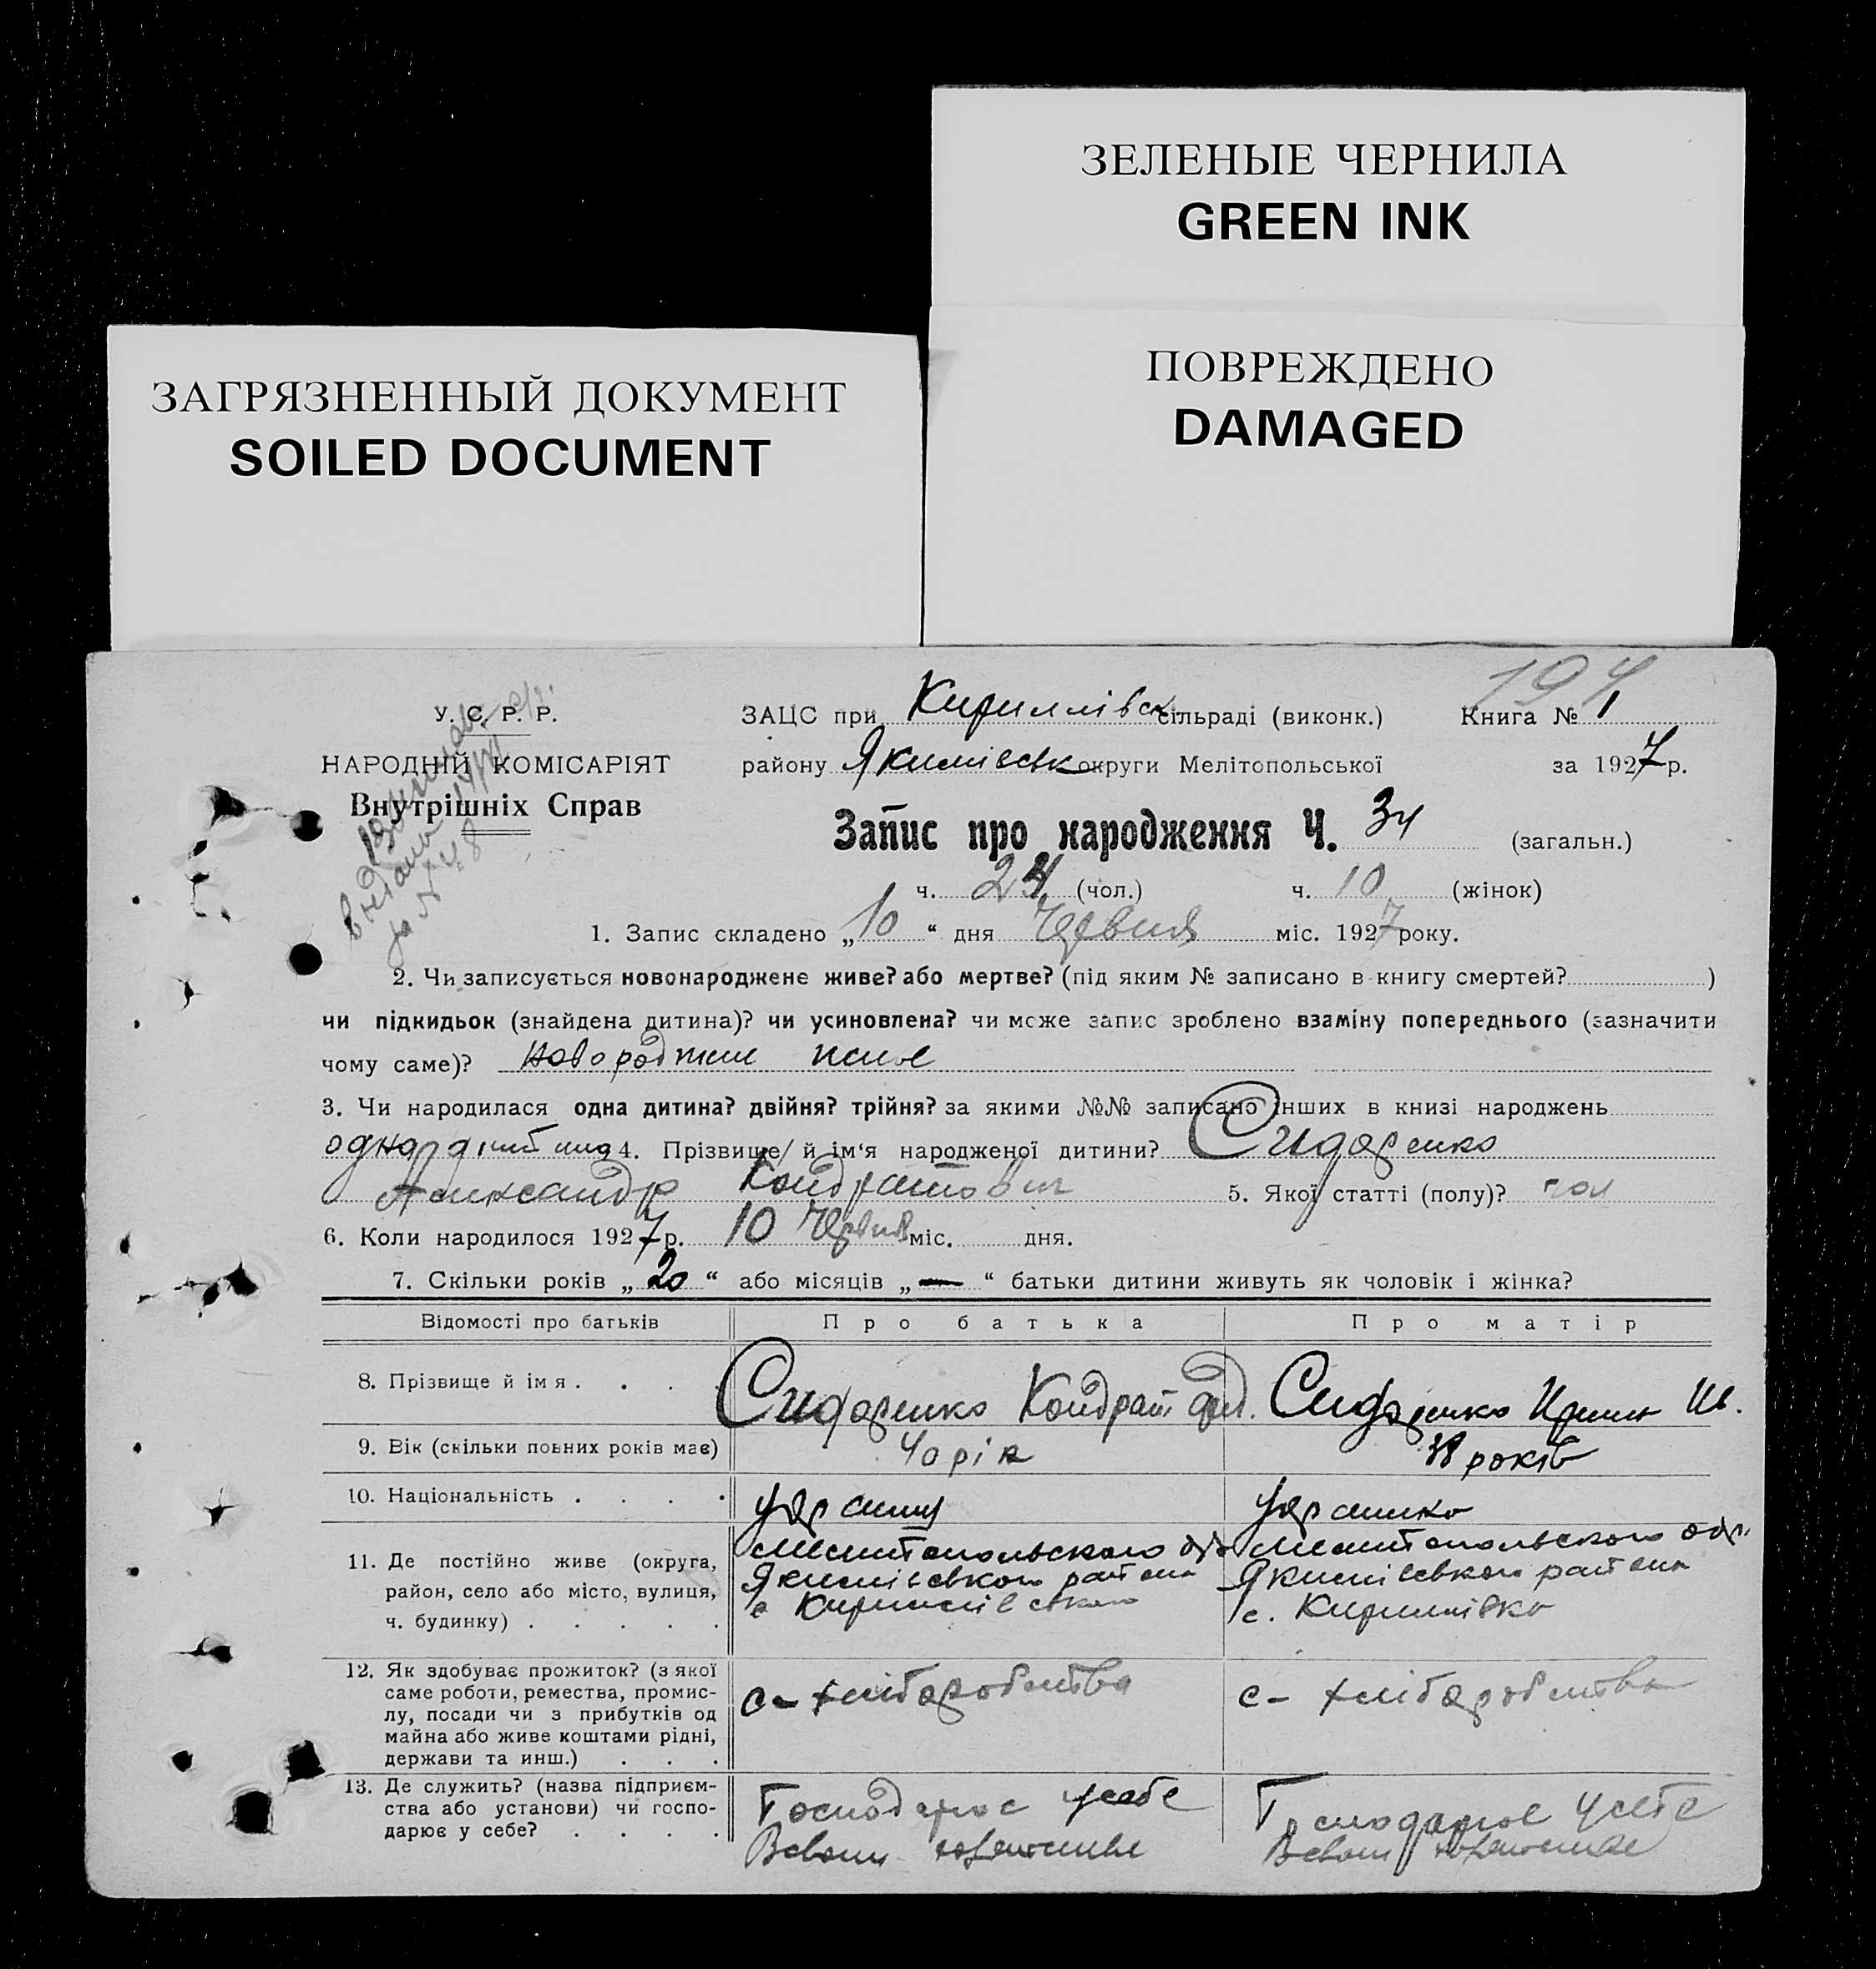 ЗЕЛЕНЫЕ ЧЕРНИЛА
GREEN INK
ПОВРЕЖДЕНО
DAMAGED
ЗАГРЯЗНЕННЫЙ ДОКУМЕНТ
SOILED DOCUMENT
194
У. С. Р. Р.
НАРОДНІЙ КОМІСАРІЯТ
Внутрішніх Справ
ЗАЦС при Кириллівск сільраді (виконк.) Книга № 1
району Якимівськ округи Мелітопольської за 1927 р.
Запис про народження Ч. 34 (загальн.)
ч. 24 (чол.) ч. 10 (жінок)
1. Запис складено „10“ дня Червня міс. 1927 року.
2. Чи записується новонароджене живе? або мертве? (під яким № записано в книгу смертей? )
чи підкидьок (знайдена дитина)? чи усиновлена? чи може запис зроблено взаміну попереднього (зазначити
чому саме)?
3. Чи народилася одна дитина? двійня? трійня? за якими №№ записано інших в книзі народжень
одна 4. Прізвище й ім‘я народженої дитини? Сидоренко
Александр Кондратович 5. Якої статті (полу)? чол
6. Коли народилося 1927 р. 10 Червня міс. дня.
7. Скільки років „20“ або місяців „—“ батьки дитини живуть як чоловік і жінка?
Відомості про батьків Про батька Про матір
8. Прізвище й імя . . . . Сидоренко Кондрат Сидоренко
9. Вік (скільки повних років має) 40 рік 38 років
10. Національність . . . . украинц украинка
11. Де постійно живе (округа,
район, село або місто, вулиця,
ч. будинку) . . . . .
Мелитопольского окр
Якимівського района
с Кириллівского
Мелитопольского окр.
Якимівского района
с. Кириллівка
12. Як здобуває прожиток? (з якої
саме роботи, ремества, промис-
лу, посади чи з прибутків од
майна або живе коштами рідні,
держави та инш.) . . .
с- хлібаробства
с- хлібаробства
13. Де служить? (назва підприєм-
ства або установи) чи госпо-
дарює у себе? . . . .
Господарює у себе
В своим
Господарює у себе
В своим